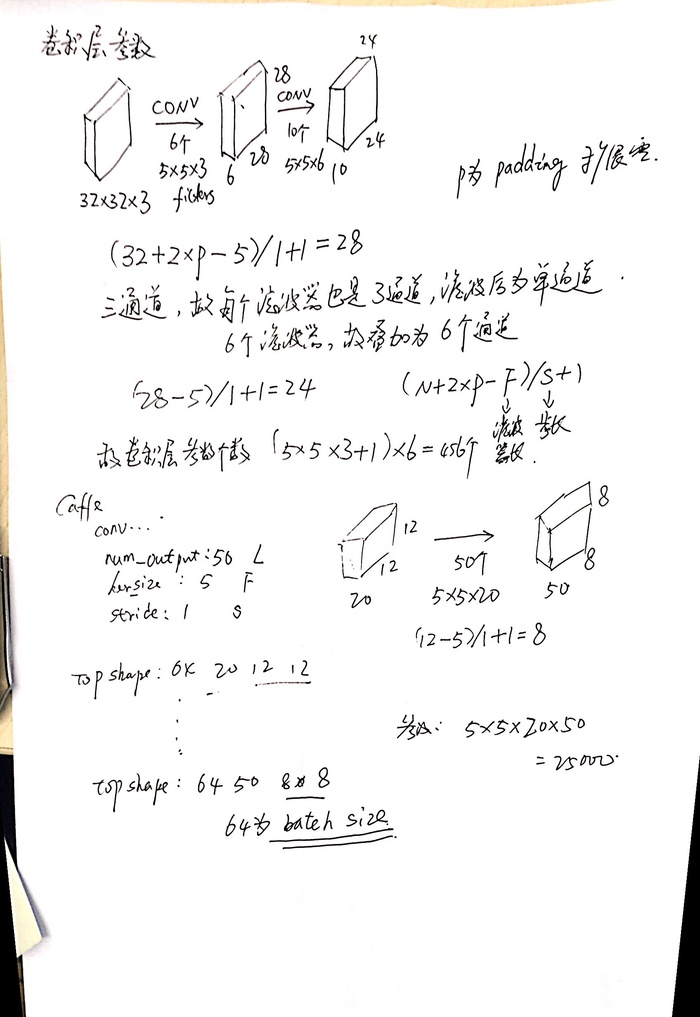 卷积层参数
24
28
CONV
CONV
6个
10个
24
5×5×3
5×5×6
28
6
10
32×32×3
filters
p为 padding 扩展
(32+2×p-5)/1+1=28
三通道,故每个滤波器也是3通道,滤波后为单通道.
6个滤波器,故叠加为6个通道
(28-5)/1+1=24
(N+2×p-F)/S+1
滤波器长
步长
故卷积层参数个数 (5×5×3+1)×6=456个
Caffe
conv...
num_output:50 L
kersize : 5 F
stride: 1 S
12
12
20
50个
5×5×20
8
8
50
(12-5)/1+1=8
Top shape: 20 12 12
参数: 5×5×20×50
=25000
Top shape: 64 50 8 8
64为 batch size